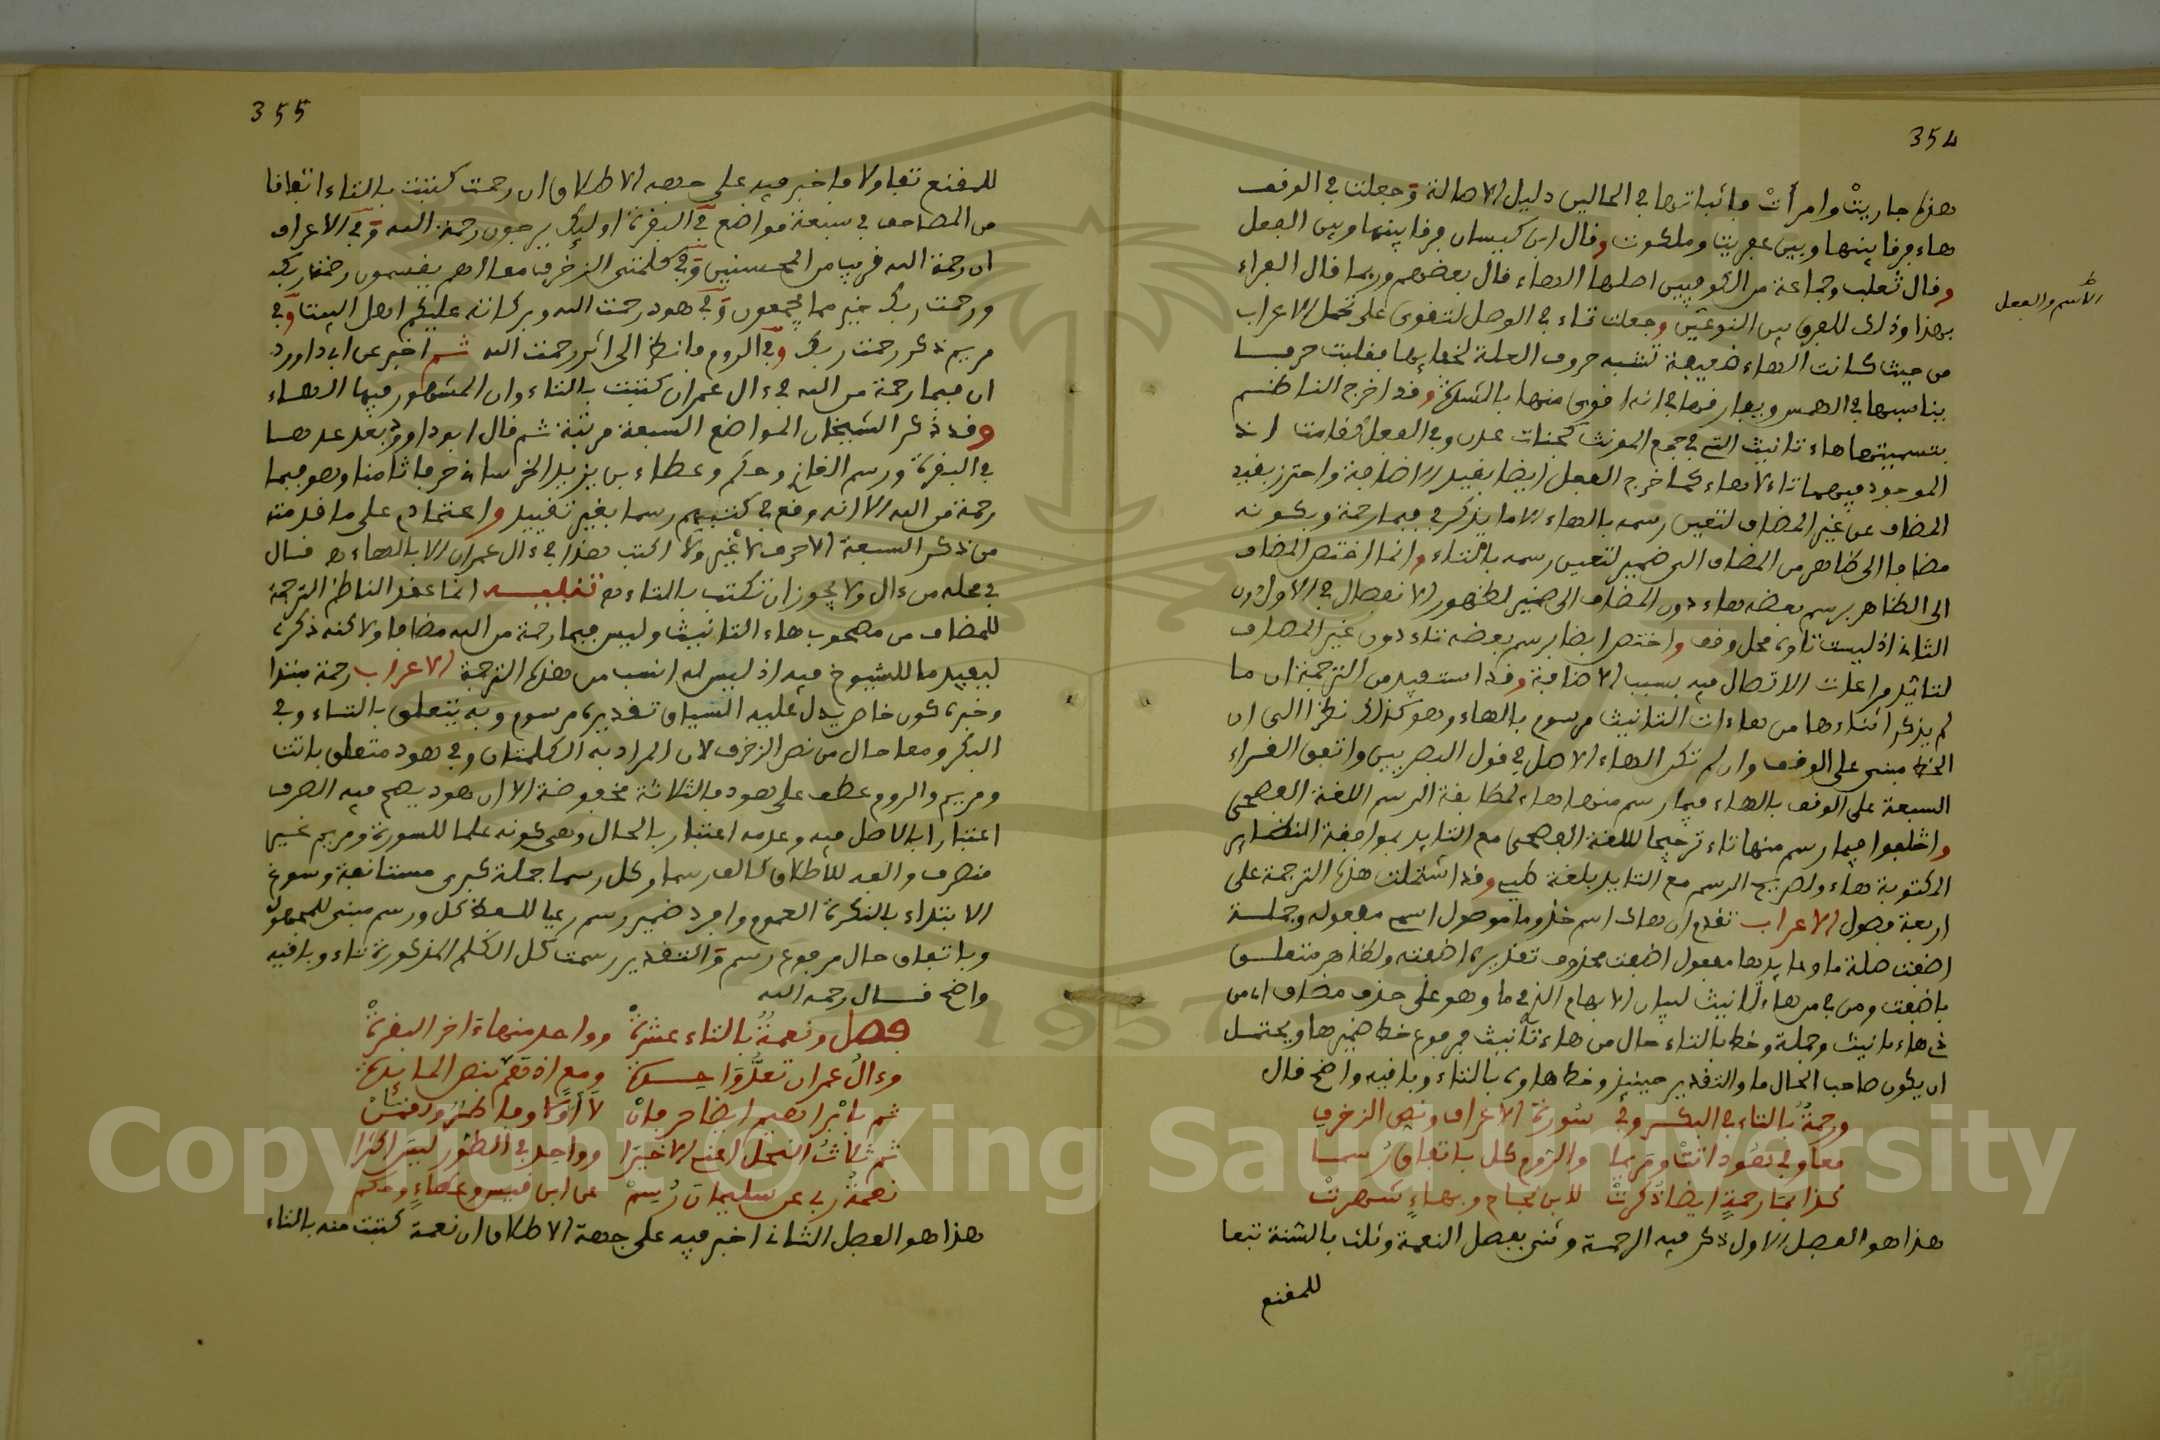 354
هذه جاريتْ وامرأتْ فاثباتها في الحالين دليل الاصالة وجعلت في الوقف
هاء فرقا بينها وبين عفريت وملكوت وقال ابن كيسان فرقا بينها وبين الفعل
وقال ثعلب وجماعة من الكوفيين اصلها الهاء قال بعضهم وربما قال الفراء
الاسم والفعل
بهذا وذلك للفرق بين النوعين وجعلت تاء في الوصل لتقوى على تحمل الاعراب
من حيث كانت الهاء ضعيفة تشبه حروف العلة لخفايها فقلبت حرفا
يناسبها في الهمس ويفارقها في انه اقوى منها بالشدة وقد اخرج الناظم
بتسميتها هاء تانيث التي في جمع المونث كجنات عدن وفي الفعل كقامت اذ
الموجود فيهما تاء لا هاء كما خرج الفعل ايضا بقيد الاضافة واحترز بقيد
المضاف عن غير المضاف لتعين رسمه بالهاء الا ما يذكر في فبما رحمة وبكونه
مضافا الى ظاهر من المضاف الى ضمير لتعين رسمه بالتاء وانما اختص المضاف
الى الظاهر برسم بعضه هاء دون المضاف الى ضمير لظهور الانفصال في الاول دون
الثاني اذ ليست تاوه محل وقف واختص ايضا برسم بعضه تاء دون غير المضاف
لتاكيد مراعات الاتصال فيه بسبب الاضافة وقد استفيد من الترجمة ان ما
لم يذكر اثناءها من هاءات التانيث مرسوم بالهاء وهو كذلك نظرا الى ان
الخط مبني على الوقف وان لم تكن الهاء الاصل في قول البصريين واتفق القراء
السبعة على الوقف بالهاء فيما رسم منها هاء لمطابقة الرسم اللغة الفصحى
واختلفوا فيما رسم منها تاء ترجيحا لللغة الفصحى مع التايد بموافقة النظاير
المكتوبة هاء ولصريح الرسم مع التايد بلغة طيي وقد اشتملت هذه الترجمة على
اربعة فصول الاعراب تقدم ان هاك اسم خذ وما موصول اسم مفعوله وجملة
اضفت صلة ما وعايدها مفعول اضفت محذوف تقديره اضفته ولظاهر متعلق
باضفت ومن في من هاء تانيث لبيان الابهام الذي في ما وهو على حذف مضاف اي من
ذي هاء تانيث وجملة وخط بالتاء حال من هاء تانيث فمرفوع خط ضميرها ويحتمل
ان يكون صاحب الحال ما والتقدير حينيذ وخط هاوه بالتاء وباقيه واضح قال
ورحمةُ بالتاء في البكر وفي سُورة الاعراف ونص الزخرف
معا وفي هُود اتتْ ومريما والروم كل باتفاق رُسما
كذا بما رحمةٍ ايضا ذُكرتْ لابن نجاح وبهاءٍ شهرتْ
هذا هو الفصل الاول ذكر فيه الرحمة وثنى بفصل النعمة وثلث بالسنة تبعا
للمقنع
355
للمقنع تفاولا فاخبر فيه على جهة الاطلاق ان رحمت كتبت بالتاء اتفاقا
من المصاحف في سبعة مواضع في البقرة اوليك يرجون رحمة الله وفي الاعراف
ان رحمة الله قريب من المحسنين وفي كلمتي الزخرف معا اهم يقسمون رحمة ربك
ورحمت ربك خير مما يجمعون وفي هود رحمت الله وبركاته عليكم اهل البيت وفي
مريم ذكر رحمت ربك وفي الروم فانظر الى اثر رحمت الله ثم اخبر عن ابي داوود
ان فبما رحمة من الله في ءال عمران كتبت بالتاء وان المشهور فيها الهاء
وقد ذكر الشيخان المواضع السبعة مرتبة ثم قال ابو داوود بعد عدها
في البقرة ورسم الغازي وحكم وعطاء بن يزيد الخرساني حرفا ثامنا وهو فبما
رحمة من الله الا انه وقع في كتبهم رسما بغير تقييد واعتمادي على ما قدمته
من ذكر السبعة الاحرف لا غير ولا اكتب هذا في ءال عمران الا بالهاء ه قال
في محله من ءال ولا يجوز ان تكتب بالتاء ه تنبيه انما عقد الناظم الترجمة
للمضاف من مصحوب هاء التانيث وليس فبما رحمة من الله مضافا ولاكنه ذكره
ليفيد ما للشيوخ فيه اذ ليس له انسب من هذه الترجمة الاعراب رحمة مبتدا
وخبره كون خاص يدل عليه السياق تقديره مرسوم وبه يتعلق بالتاء وفي
البكر ومعا حال من نص الزخرف لان المراد به الكلمتان وفي هود متعلق باتت
ومريم والروم عطف على هود فالثلاثة مخفوضة الا ان هود يصح فيه الصرف
اعتبارا بالاصل فيه وعدمه اعتبار بالحال وهي كونه علما للسورة ومريم غير
منصرف والفه للاطلاق كالف رسما وكل رسما جملة كبرى مستانفة وسوغ
الابتداء بالنكرة العموم وافرد ضمير رسم رعيا للفظ كل ورسم مبني للمجهول
وباتفاق حال مرفوع رسم والتقدير رسمت كل الكلم المذكورة تاء وباقيه
واضح قال رحمه الله
فصل ونعمةُ بالتاء عشرهْ وواحد منها ةاخر البقرهْ
وءال عمران تعدُّ واحده ومع اذ همّ بنص المايده
ثم بابراهيم ايضا حرفان لا اولا وما لهنّ ودفتان
ثم ثلاثُ النحل اعني الاخيرا وواحد في الطور ليس اكثرا
نعمةُ ربي عن سليمان رُسِمْ عن ابن قيس وعطاءٍ وحكم
هذا هو الفصل الثاني اخبر فيه على جهة الاطلاق ان نعمة كتبت منه بالتاء
Copyright © King Saud University
1957